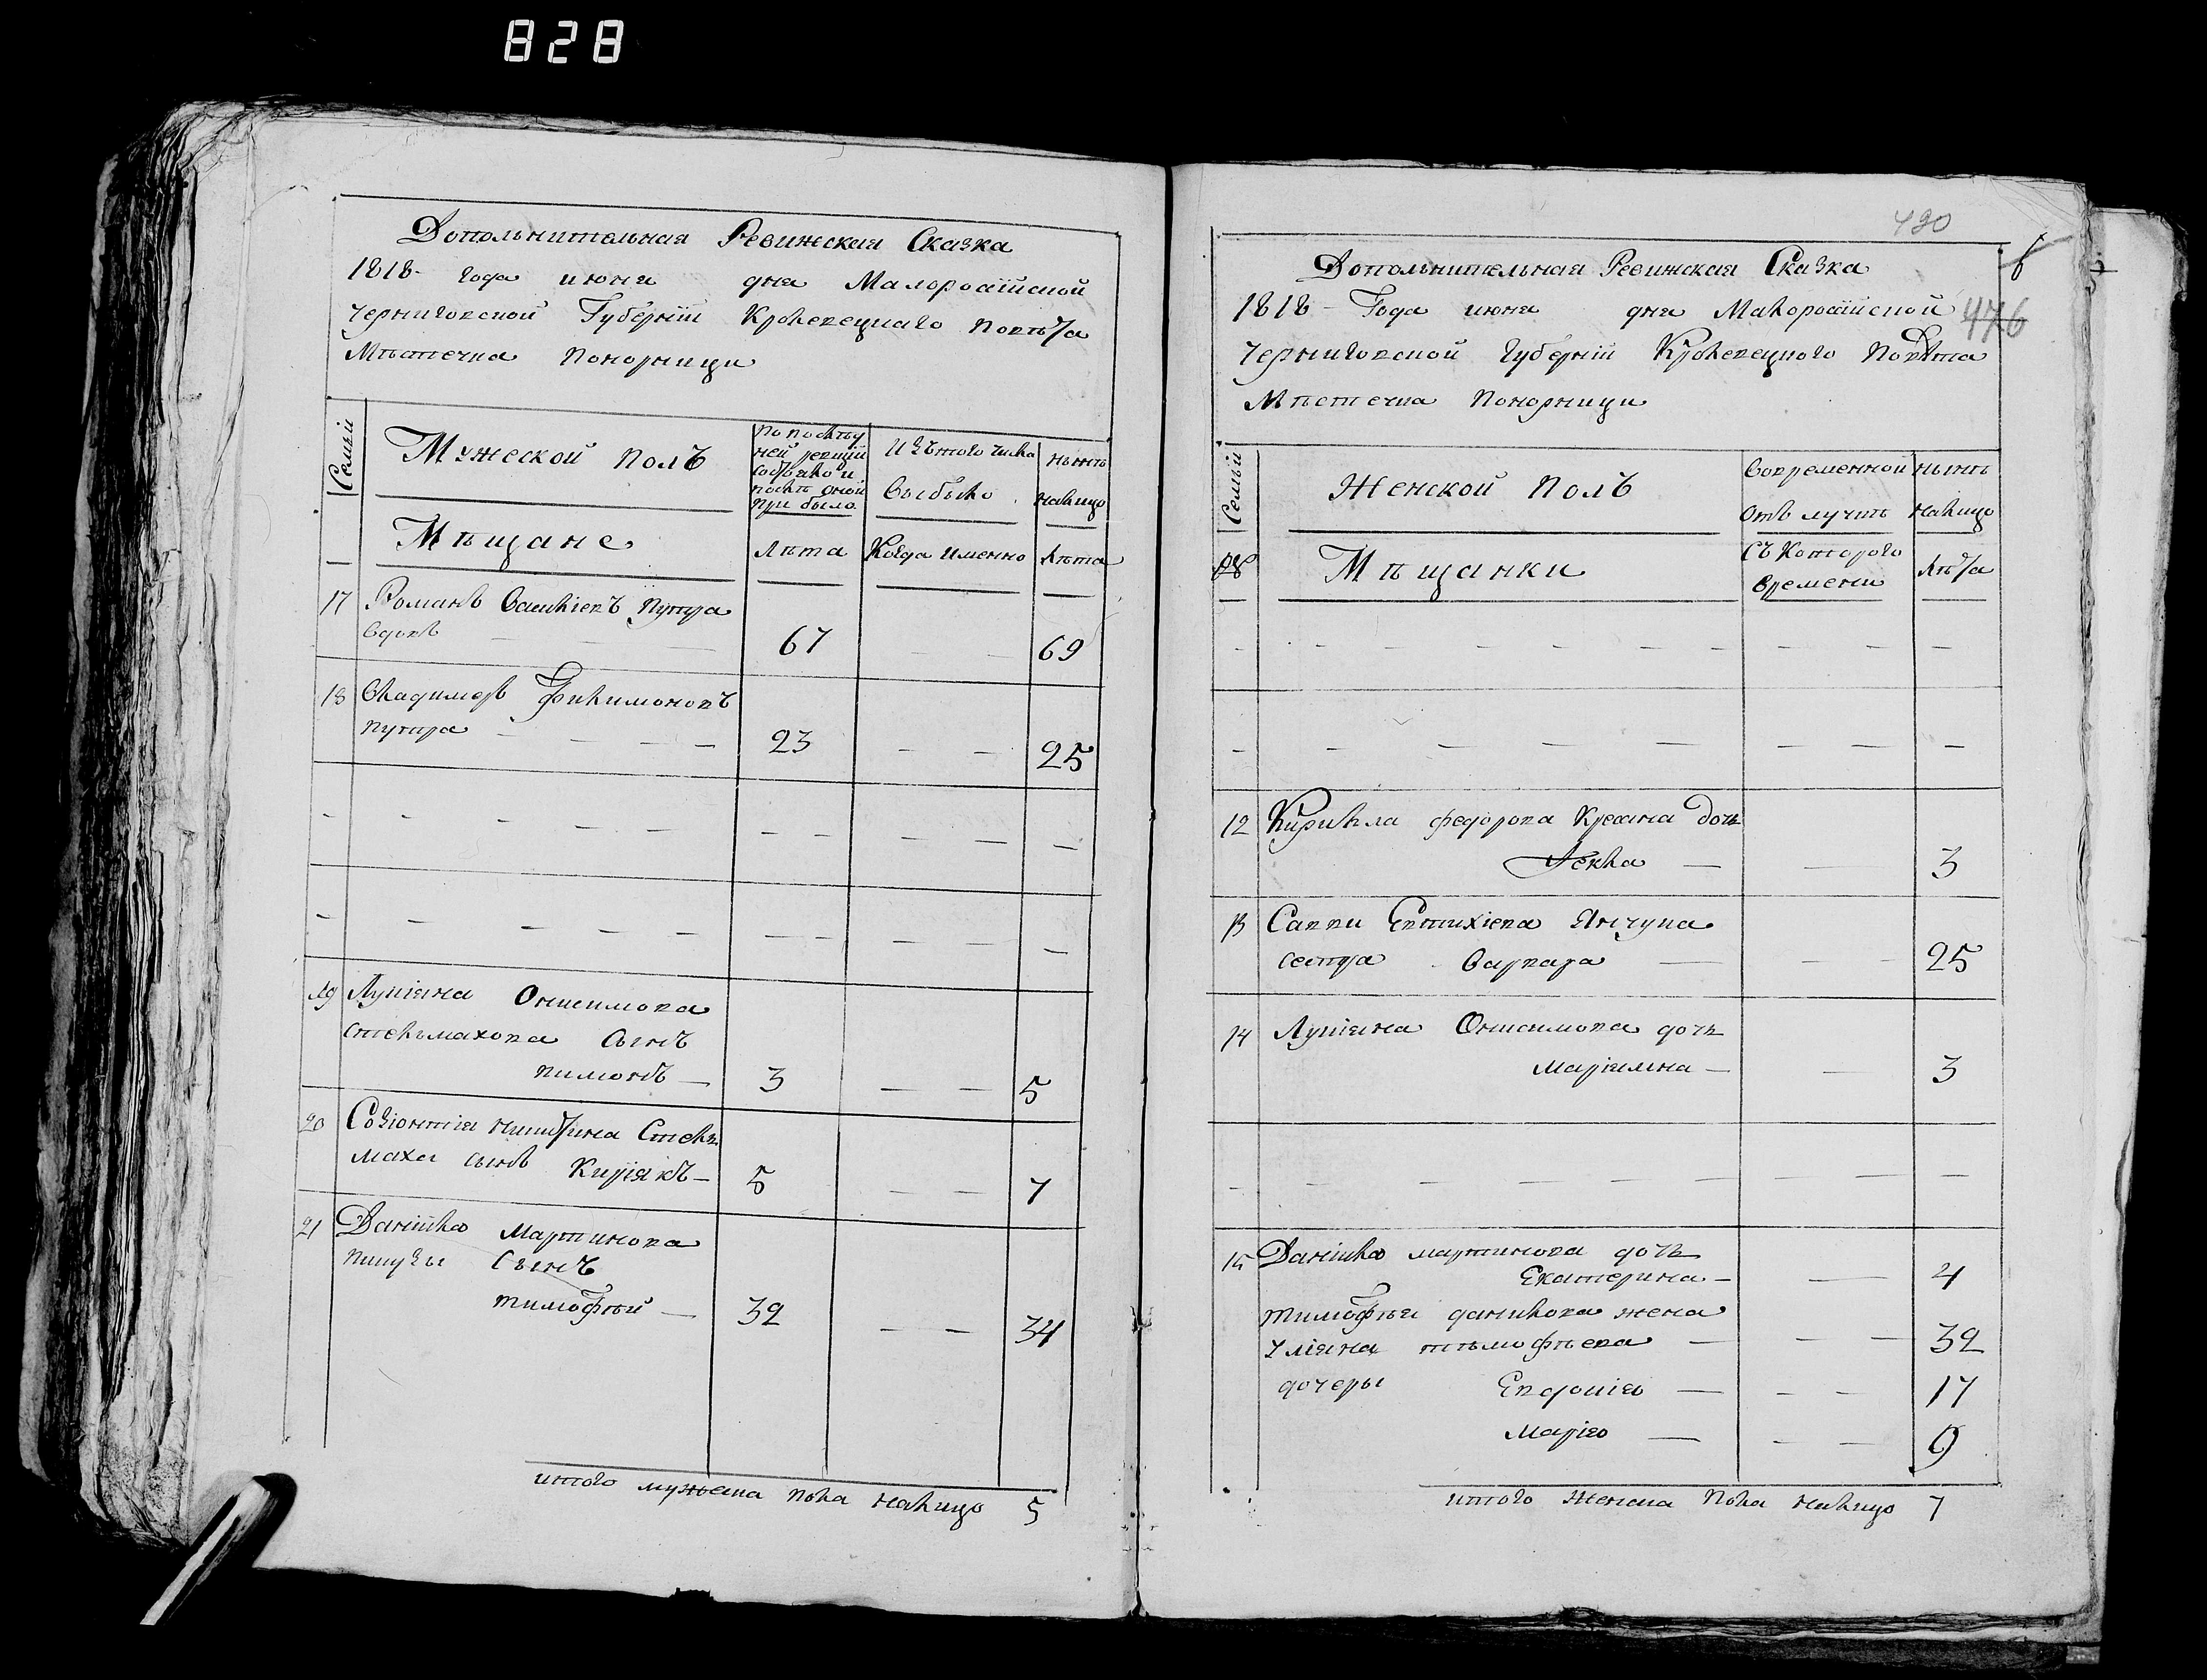 828
Дополнительная Ревижская Сказка
1818- года июня дня Малоросiйской
Черниговской Губернiи Кролевецкаго повѣта
Мѣстечка Понорници
Семьи
Мужеской полъ
По послѣд
ней ревизiи
состояло и
послѣ оной
прибыло
Изъ того числа
выбыло
Нынѣ
налицо
Мѣщане
Лѣта
Когда именно
Лѣта
17 Романъ Васильевъ Путра
вдовъ 67 69
18 Владимеръ Филимоновъ
Путра 23 25
19 Лупiяна Онисимова
Стельмахова сынъ
Пимонъ 3 5
20 Созонтiя Никитина Стель
маха сынъ Кирiякъ 5 7
21 Данiйла Мартинова
Пинчука сынъ
Тимофѣй 32 34
итого мужеска пола налицо 5
490
476
Дополнительная Ревижская Сказка
1818- Года июня дня Малоросiйской
Черниговской Губернiи Кролевецкого Повѣта
Мѣстечка Понорници
Семьи
Женской полъ
Во временной
отълучкѣ
Нынѣ
налицо
Мѣщанки
Съ Которого
времени
Лѣта
12 Кирилла Федорова Кресана дочь
Текла 3
13 Саввы Евтихiева Янчука
сестра Варвара 25
14 Лупiяна Онисимова дочь
Марiямна 3
15 Данiйла Мартинова дочь
Екатерина 4
Тимофѣя Данилова жена
Улiяна Тимофѣева 32
дочеры Евдокiя 17
Марiя 9
итого Женска пола налицо 7